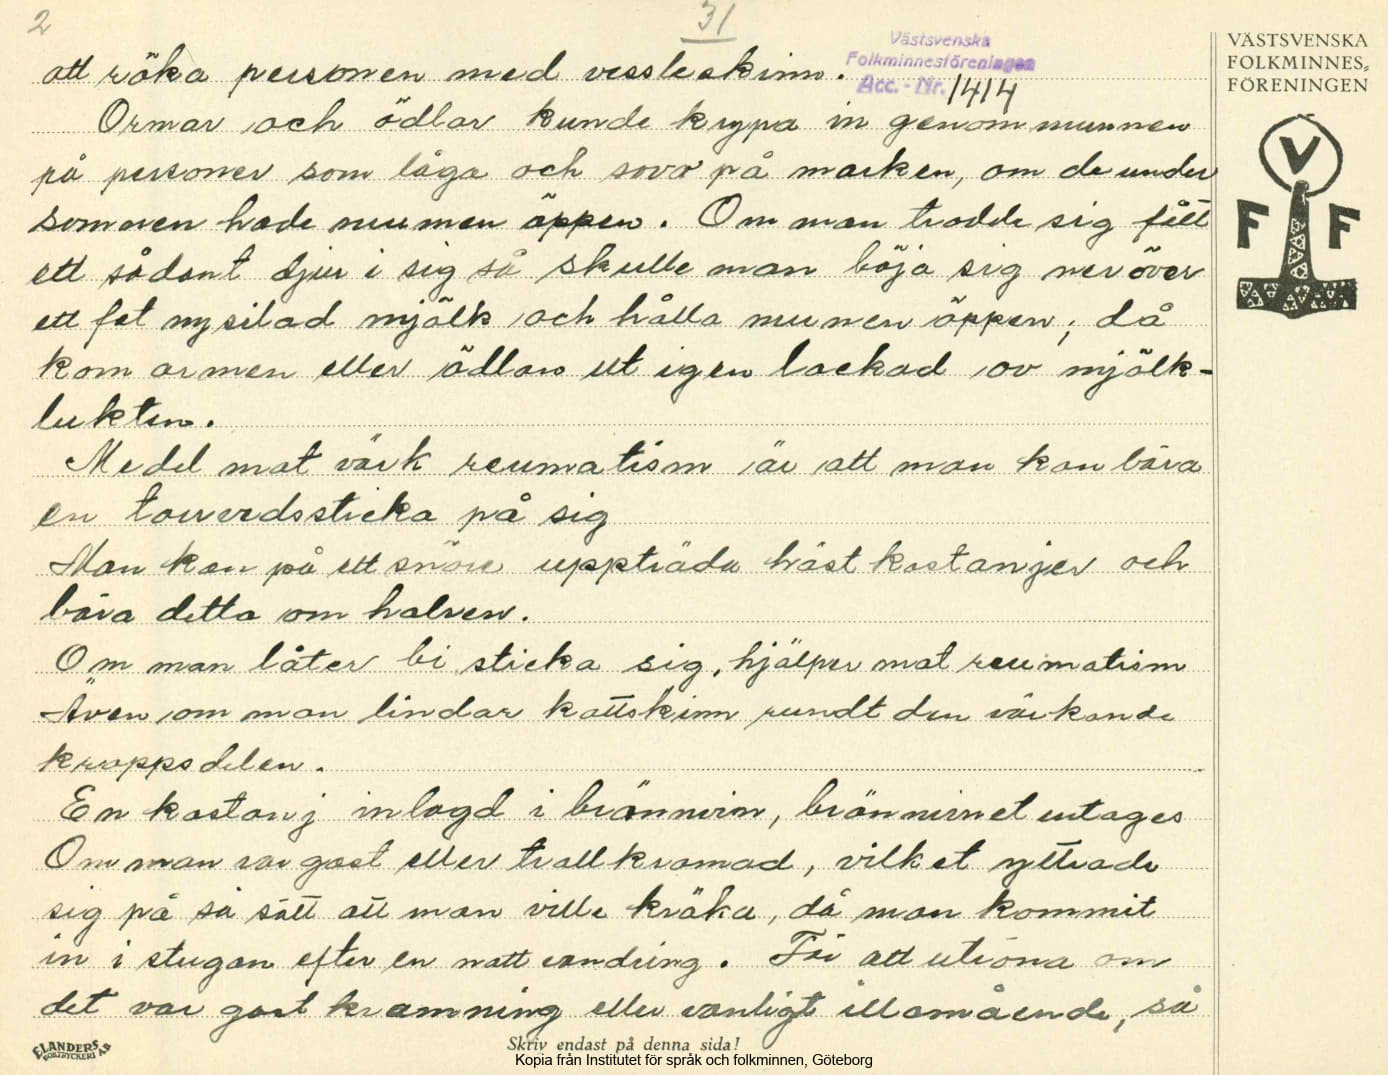 2
31
Västsvenska
Folkminnesföreningen
Acc. - Nr. 1414
VÄSTSVENSKA
FOLKMINNES-
FÖRENINGEN
V
F F
att röka personen med vessleskinn.
Ormar och ödlor kunde krypa in genom munnen
på personer som låga och sova på marken, om de under
sommen hade munnen öppen. Om man trodde sig fått
ett sådant djur i sig så skulle man böja sig ner över
ett fat nysilad mjölk och hålla munnen öppen; då
kom ormen eller ödlan ut igen lockad av mjölk-
lukten.
Medel mot värk reumatism är att man kan bära
en torvedssticka på sig
Man kan på ett snöre uppträda hästkastanjer och
bära detta om halsen.
Om man låter bi sticka sig, hjälper mot reumatism
Även om man lindar kattskinn rundt den värkande
kroppsdelen.
En kastanj inlagd i brännvin, brännvinet intages
Om man var gast eller trollkramad, vilket yttrade
sig på så sätt att man ville kräka, då man kommit
in i stugan efter en natt vandring. För att utröna om
det var gast kramning eller vanligt illamående, så
ELANDERS
BOKTRYCKERI AB
Skriv endast på denna sida!
Kopia från Institutet för språk och folkminnen, Göteborg